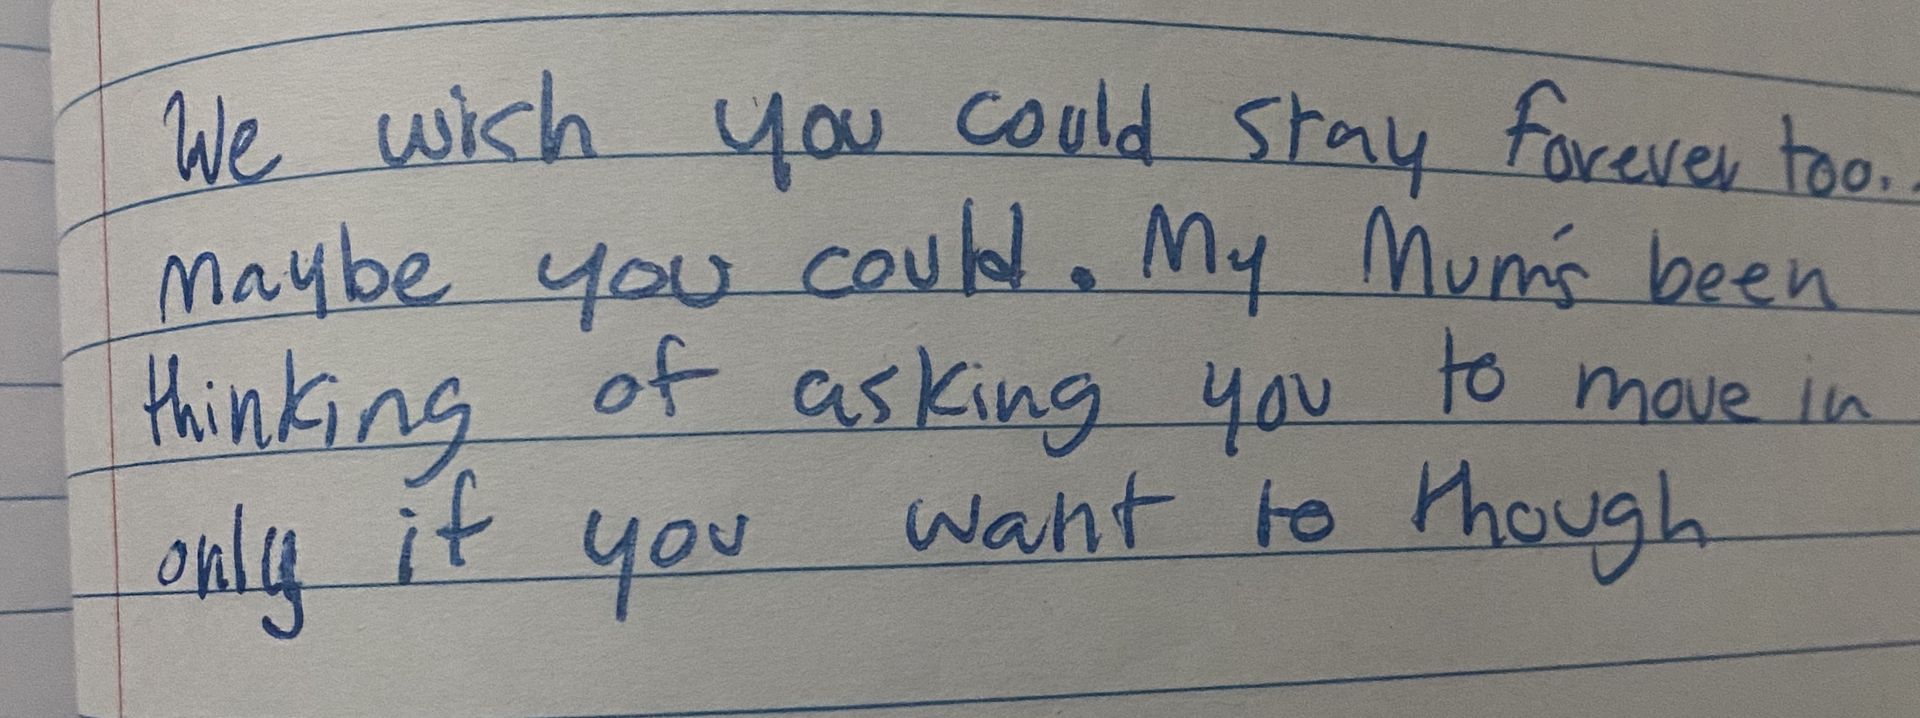 We wish you could stay forever too..
maybe you could. My Mum's been
thinking of asking you to move in
only if you want to though